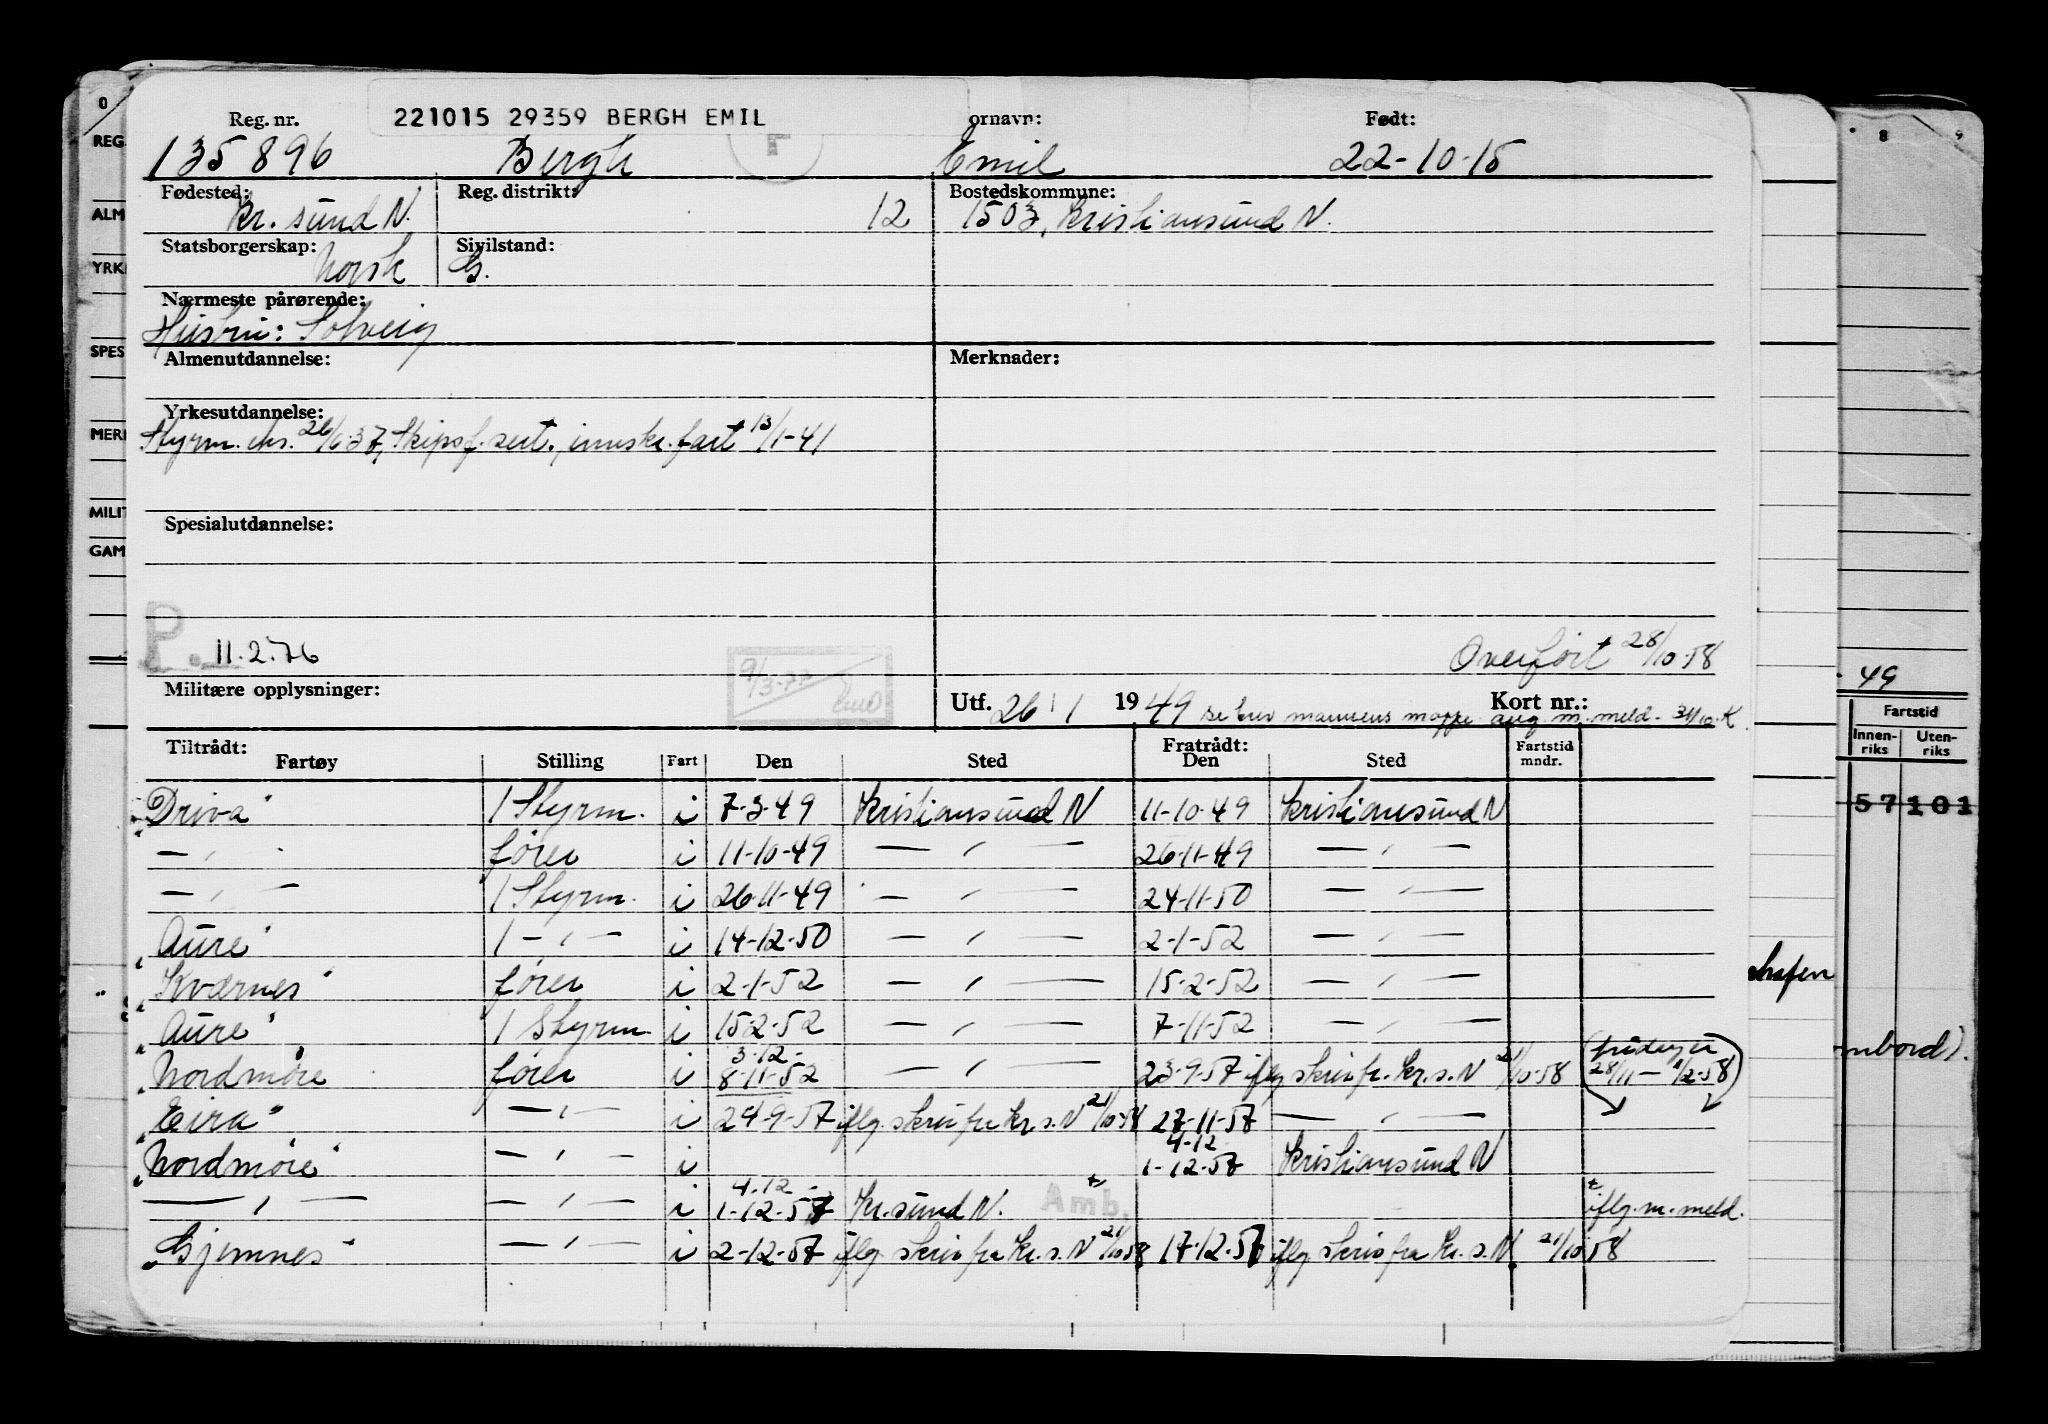 221015 29359 BERGH EMIL
Reg. nr. ornavn: Født:
135896 Bergh Emil 22-10-15
Fødested: Reg. distrikt: Bostedskommune:
Kr. sund N. 12 1503, Kristiansund N.
Statsborgerskap: Sivilstand:
Norsk G.
Nærmeste pårørende:
Hustru: Solveig
Almenutdannelse: Merknader:
Yrkesutdannelse:
Styrm. eks. 26/6-37, Skipsf. sert., innskr. fart 13/1-41
Spesialutdannelse:
P. 11.2.76
9/3-77 Overført 28/10-58
Militære opplysninger: Utf. 26/1 1949 Kort nr.:
se brev mannens mappe ang. m. meld. 31/10 K.
Tiltrådt: Fratrådt: Fartstid
Fartøy Stilling Fart Den Sted Den Sted mndr.
"Driva" 1 Styrm. i 7-3-49 Kristiansund N 11-10-49 Kristiansund N
— " — fører i 11-10-49 — " — 26-11-49 — " —
— " — 1 Styrm. i 26-11-49 — " — 24-11-50 — " —
"Aure" 1 — " — i 14-12-50 — " — 2-1-52 — " —
"Kværnes" fører i 2-1-52 — " — 15-2-52 — " —
"Aure" 1 Styrm i 15-2-52 — " — 7-11-52 — " —
3-12-
"Nordmøre fører i 8-11-52 — " — 23-9-57 iflg skriv fr. Kr. s. N 21/10-58 28/11 — 1/2-58
"Eira" — " — i 24-9-57 iflg. skriv fra Kr. s. N 21/10-58 27-11-57 — " —
4-12
"Nordmøre" — " — i 1-12-57 Kristiansund N
4-12-
— " — — " — i 1-12-57 Kr. sund N. Amb. iflg. m. meld.
"Gjemnes" — " — i 2-12-57 iflg. skriv fra Kr. s. N 21/10-58 17-12-57 iflg skriv fra Kr. s. N. 21/10-58
REG.
ALM
YRK
SPES
MERK
MILIT
GAM
0
8 9
49
Fartstid
Innen-riks Uten-riks
57 101
ombord).